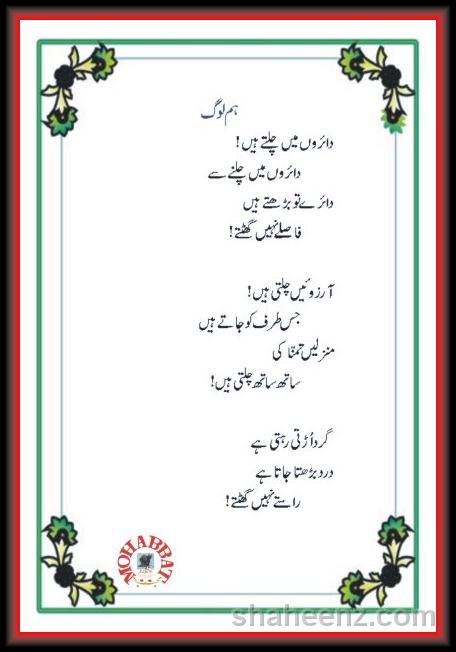 ہم لوگ
دائروں میں چلتے ہیں!
دائروں میں چلنے سے
دائرے تو بڑھتے ہیں
فاصلے نہیں گھٹتے!
آرزوئیں چلتی ہیں!
جس طرف کو جاتے ہیں
منزلیں تمنّا کی
ساتھ ساتھ چلتی ہیں!
گرد اُڑتی رہتی ہے
درد بڑھتا جاتا ہے
راستے نہیں گھٹتے!
MOHABBAT
shaheenz.com